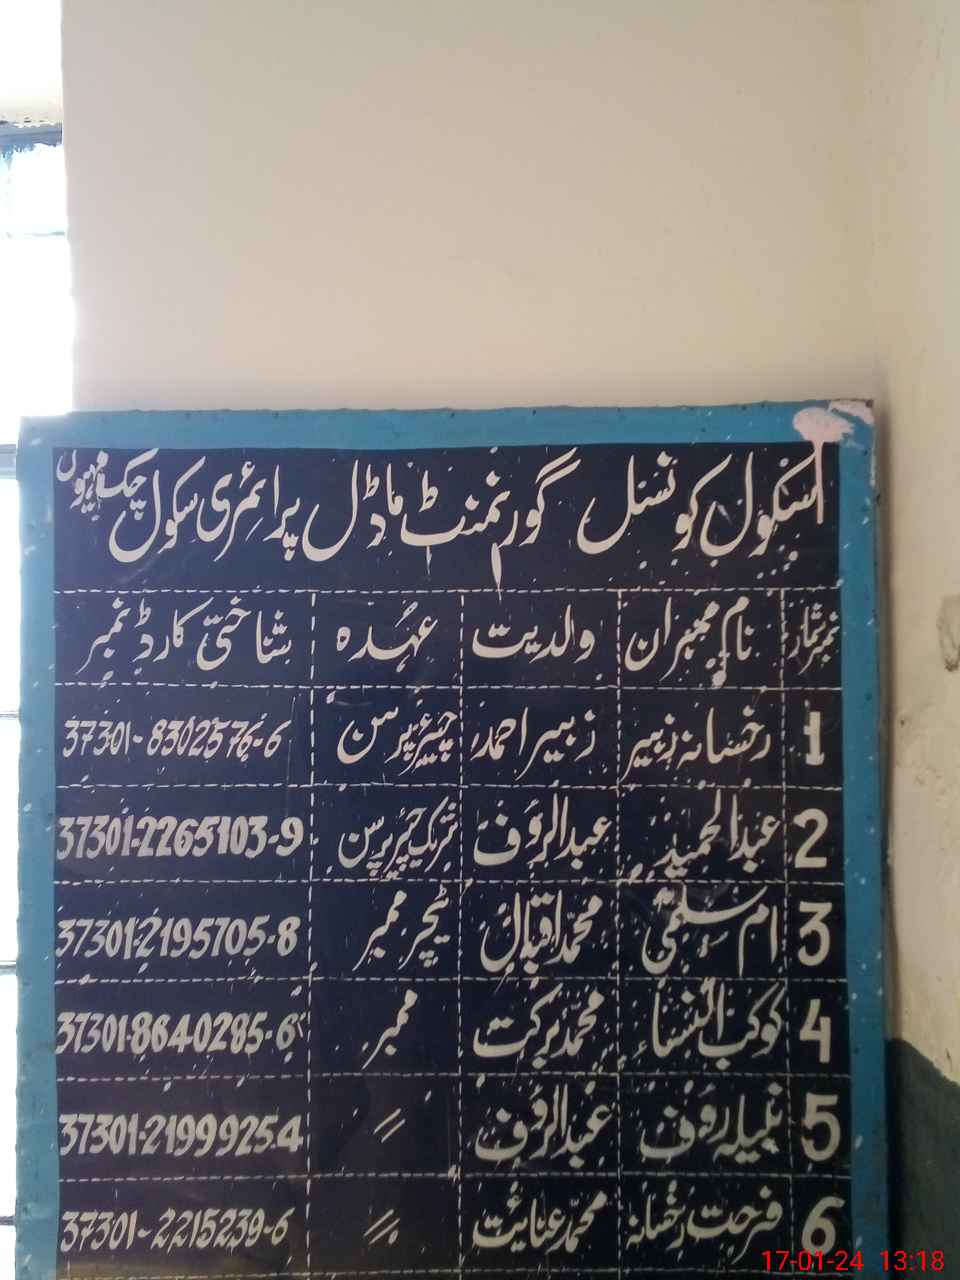 سکول کونسل گورنمنٹ ماڈل پرائمری سکول چک
نمبر شمار نام ممبران ولدیت عہدہ شناختی کارڈ نمبر
1 رخسانہ زبیر زبیر احمد چیئر پرسن 37301-8302576-6
2 عبدالحمید عبدالرؤف چیئر پرسن 37301-2265103-9
3 ام سلمٰی محمد اقبال ٹیچر ممبر 37301-2195705-8
4 کوکب النساء محمد برکت ممبر 37301-8640285-6
5 نبیلہ رؤف عبدالرؤف // 37301-2199925-4
6 فرحت رخسانہ محمد عنائیت // 37301-2215239-6
17-01-24 13:18